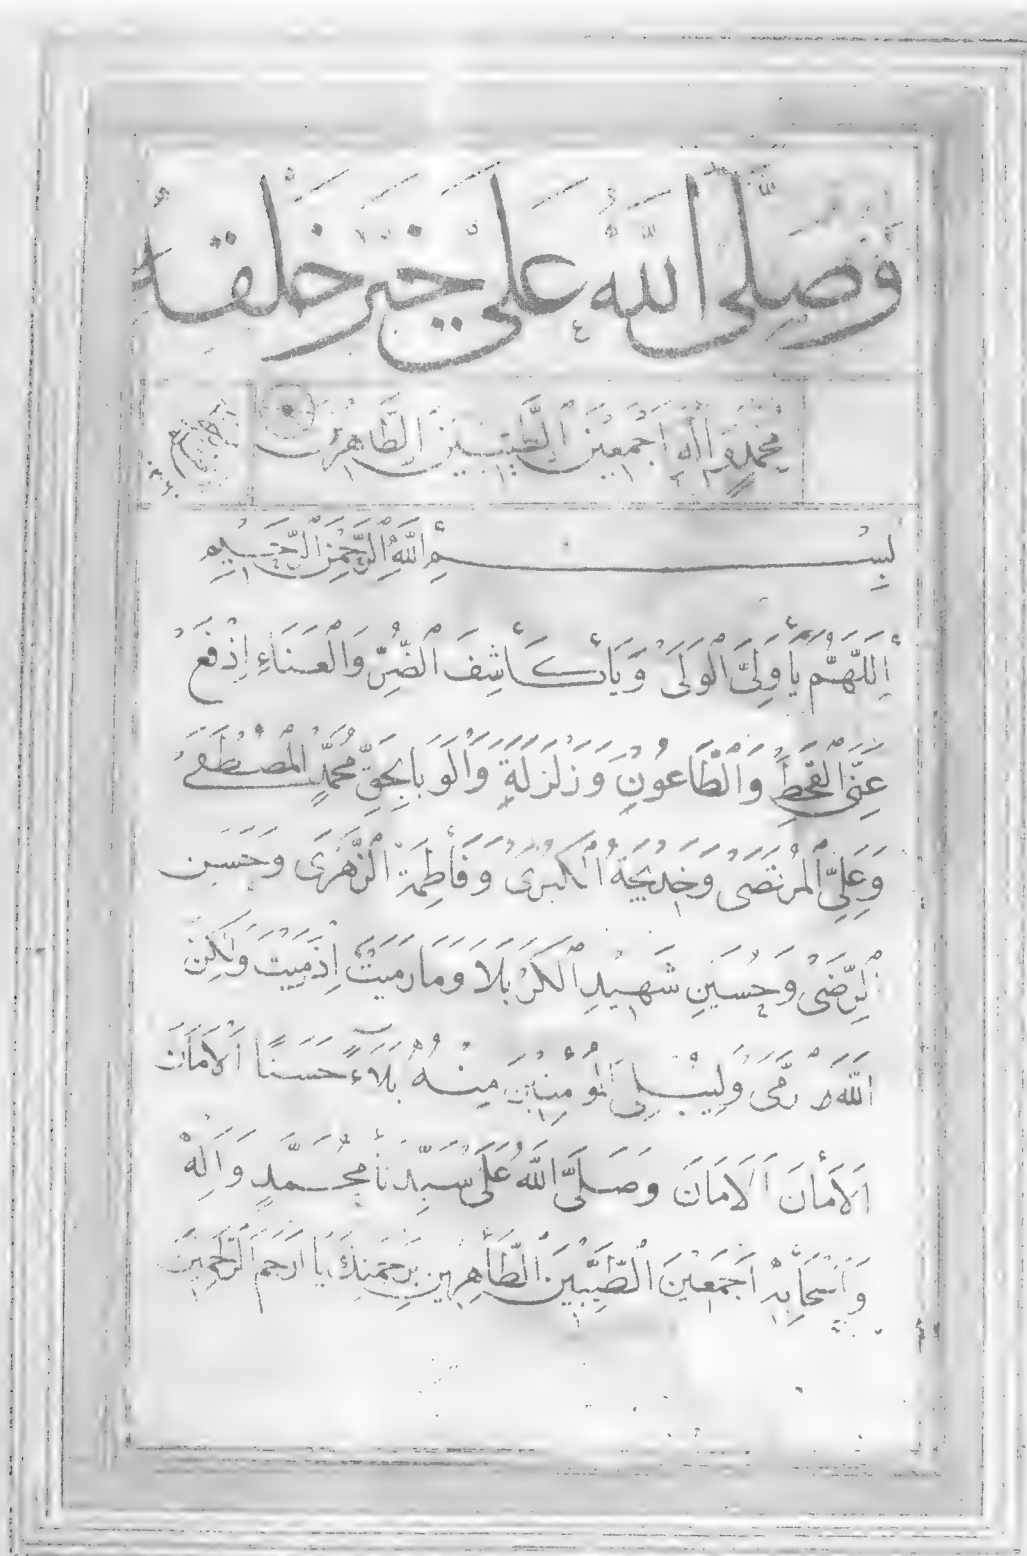 وَصَلَّى اللَّهُ عَلَى خَيْرِ خَلْقِهِ
مُحَمَّدٍ وَاٰلِهِ اَجْمَعِينَ الطَّيِّبِينَ الطَّاهِرِينَ
بِسْمِ اللَّهِ الرَّحْمٰنِ الرَّحِيمِ
أَللَّهُمَّ يَا وَلِيَّ الْوَلَى وَيَا كَاشِفَ الضُّرِّ وَالْعَنَاءِ اِدْفَعْ
عَنِّي الْقَحْطِ وَالطَّاعُونِ وَزَلْزَلَةٍ وَالْوَبَا بِحَقِّ مُحَمَّدٍ الْمُصْطَفَى
وَعَلِيِّ الْمُرْتَضَى وَخَدِيجَةُ الْكُبْرَى وَفَاطِمَةَ الزَّهْرَى وَحَسَنِ
الرِّضَى وَحُسَيْنِ شَهِيدِ الْكَرْبَلَا وَمَا رَمَيْتَ اِذْ رَمَيْتَ وَلٰكِنَّ
اللَّهَ رَمَى وَلِيُبْلِىَ الْمُؤْمِنِينَ مِنْهُ بَلَاءً حَسَنًا اَلْاَمَانَ
اَلْاَمَانَ اَلْاَمَانَ وَصَلَّى اللَّهُ عَلَى سَيِّدِنَا مُحَمَّدٍ وَاٰلِهْ
وَاَصْحَابِهْ اَجْمَعِينَ الطَّيِّبِينَ الطَّاهِرِينَ بِرَحْمَتِكَ يَا اَرْحَمَ الرَّاحِمِينَ